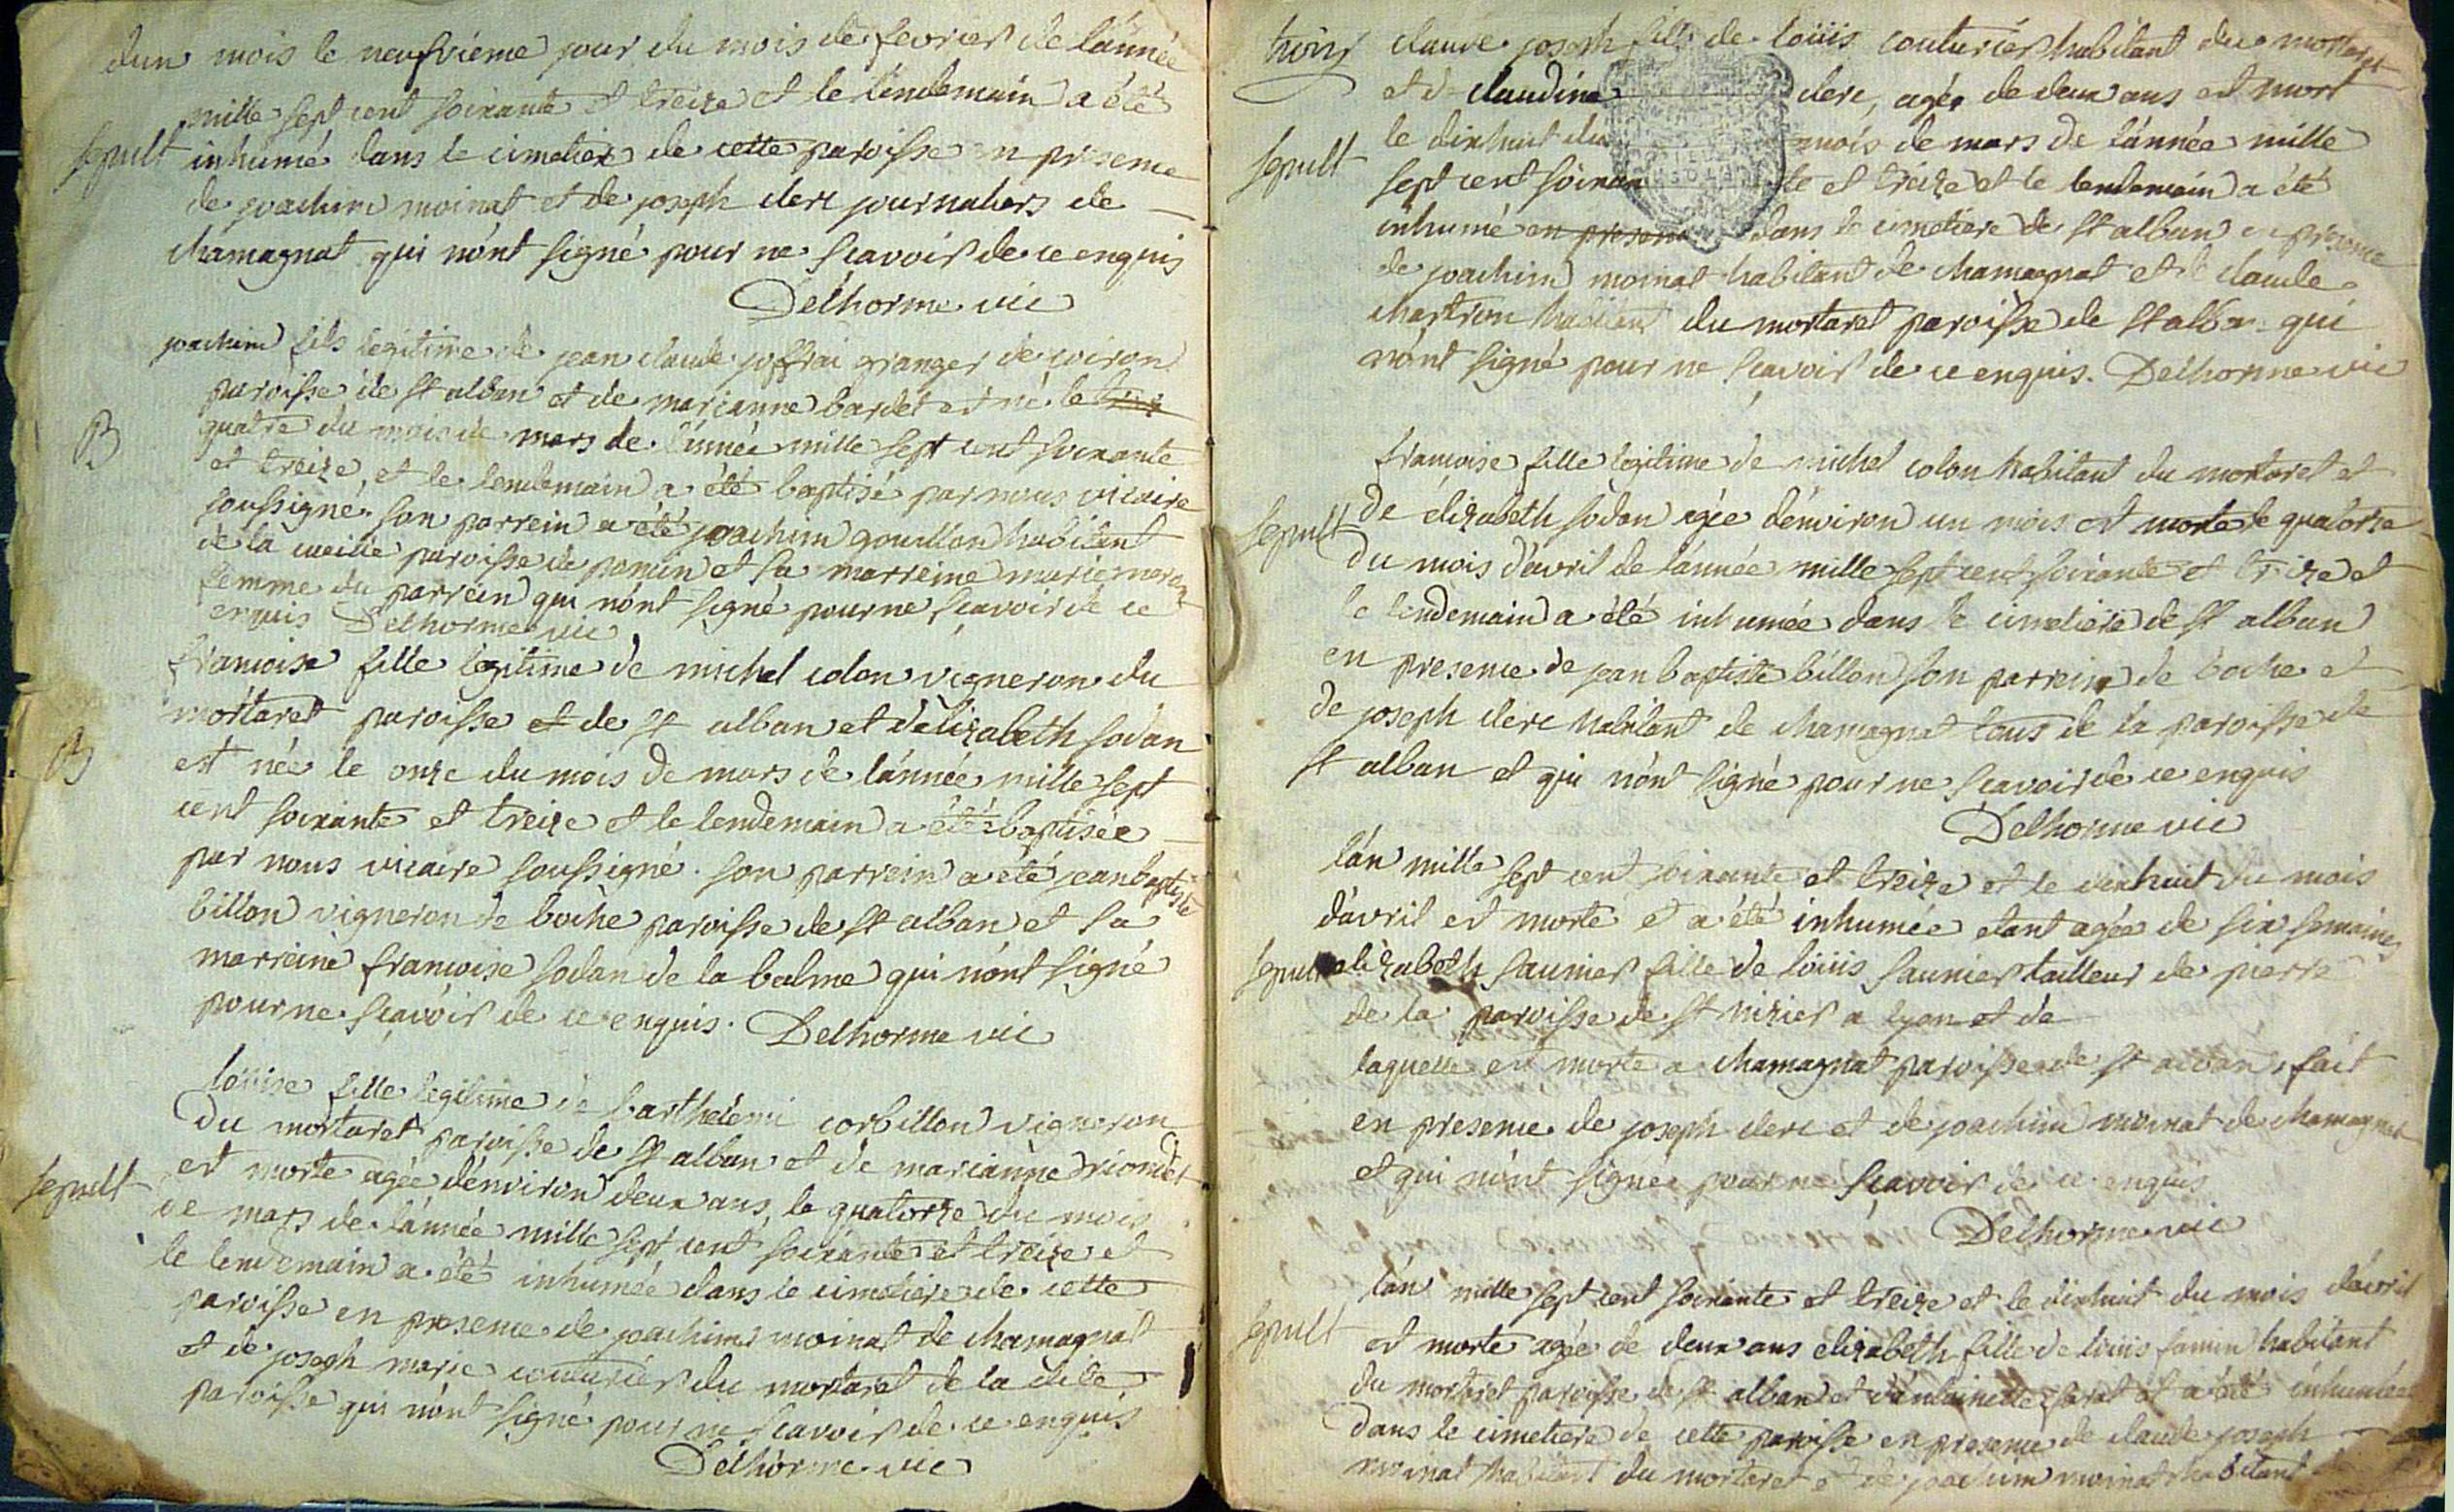 dun mois le neufvieme jour du mois de fevrier de lánnée
mille sept cent soixante et treize et le lendemain a été
sepult inhumé dans le cimetiere de cette paroisse en presence
de joachim moinat et de joseph clerc journaliers de
chamagnat qui nónt signé pour ne scavoir de ce enquis
Delhorme vic
joachim fils legitime de jean claude joffrai granger de
paroisse de st alban et de marianne bardet est né le
B quatre du mois de mars de lánnée mille sept cent soixante
et treize, et le lendemain a été baptisé par nous vicaire
soussigné. son parrein a été joachim gouillon habitant
de la paroisse de poncin et sa marreine marie
femme du parrein qui nónt signé pour ne scavoir de ce
enquis Delhorme vic
francoise fille legitime de michel colon vigneron du
mortaret paroisse et de st alban et délizabeth sodan
B est née le onze du mois de mars de lánnée mille sept
cent soixante et treize et le lendemain a été baptisée
par nous vicaire soussigné. son parrein a été jean baptiste
billon vigneron de boche paroisse de st alban et sa
marreine francoise sodan de la balme qui nónt signé
pour ne scavoir de ce enquis. Delhorme vic
loüise fille legitime de barthelemi corbillon vigneron
du mortaret paroisse de st alban et de marianne riondet
sepult est morte agée dénviron deux ans, le quatorze du mois
de mars de lánnée mille sept cent soixante et treize et
le lendemain a été inhumée dans le cimetiere de cette
paroisse en presence de joachim moinat de chamagnat
et de joseph marie couturier du mortaret de la dite
paroisse qui nónt signé pour ne scavoir de ce enquis
Delhorme vic
claude joseph fils de loüis couturier habitant du mortaret
et d claudine clerc, agé de deux ans est mort
le dixhuit du mois de mars de lánnée mille
sepult sept cent soixan te et treize et le lendemain a été
inhumé en presence dans le cimetiere de st alban en presence
de joachim moinat habitant de chamagnat et de claude
chartron habitant du mortaret paroisse de st alban qui
nónt signé pour ne scavoir de ce enquis. Delhorme vic
francoise fille legitime de michel colon habitant du mortaret et
sepult de élizabeth sodan agée dénviron un mois est morte le quatorze
du mois dávril de lánnée mille sept cent soixante et treize et
le lendemain a été inhumée dans le cimetiere de st alban
en presence de jean baptiste billon son parrein de boche et
de joseph clerc habitant de chamagnat tous de la paroisse de
st alban et qui nónt signé pour ne scavoir de ce enquis
Delhorme vic
lán mille sept cent soixante et treize et le dixhuit du mois
dávril est morte et a été inhumée etant agée de six semaines
sepult elizabeth saunier fille de loüis saunier tailleur de pierre
de la paroisse de st nizier a lyon et de
laquelle est morte a chamagnat paroisse de st alban, fait
en presence de joseph clerc et de joachim moinat de chamagnat
et qui nónt signée pour ne scavoir de ce enquis
Delhorme vic
lán mille sept cent soixante et treize et le dixhuit du mois dávril
sepult est morte agée de deux ans elizabeth fille de loüis habitant
du mortaret paroisse de st alban et dántoinette et a été inhumée
dans le cimetiere de cette paroisse en presence de claude joseph
moinat habitant du mortaret et de joachim moinat habitant